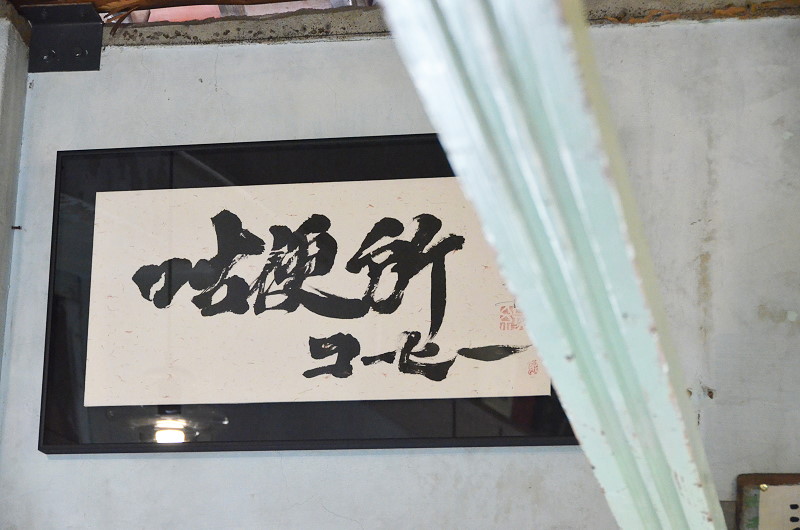 咕便所
コーヒー